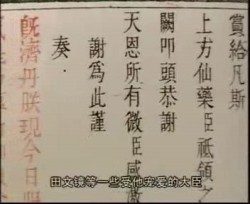 賞給凡斯
上方仙藥臣祗領之
闕叩頭恭謝
天恩所有微臣感激
謝為此謹
奏
既濟丹朕現今日
田文镜等一些受他宠爱的大臣